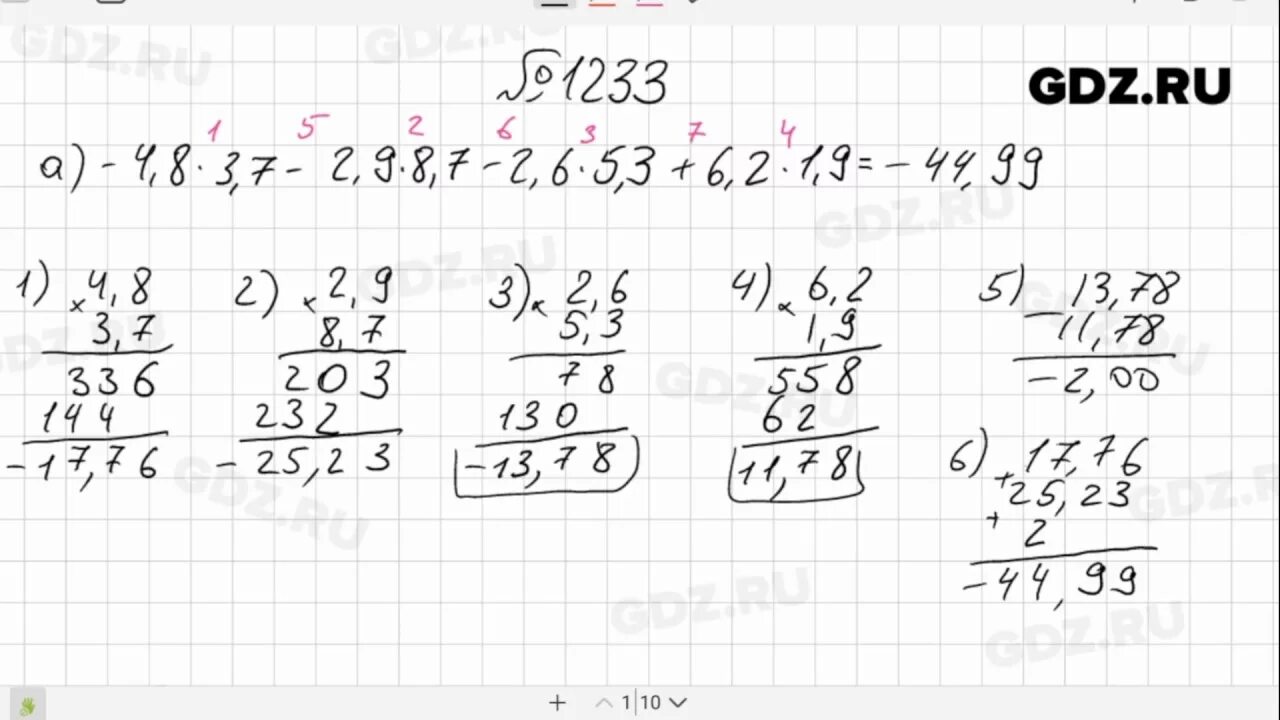 №1233
GDZ.RU
1 5 2 6 3 7 4
а) -4,8·3,7- 2,9·8,7-2,6·5,3+6,2·1,9=-44,99
1) × 4,8
3,7
336
144
-17,76
2) × 2,9
8,7
203
232
-25,23
3) × 2,6
5,3
78
130
-13,78
4) × 6,2
1,9
558
62
11,78
5) - 13,78
11,78
-2,00
6) + 17,76
+ 25,23
2
-44,99
1|10
GDZ.RU
GDZ.RU
GDZ.RU
GDZ.RU
GDZ.RU
GDZ.RU
GDZ.RU
GDZ.RU
GDZ.RU
GDZ.RU
GDZ.RU